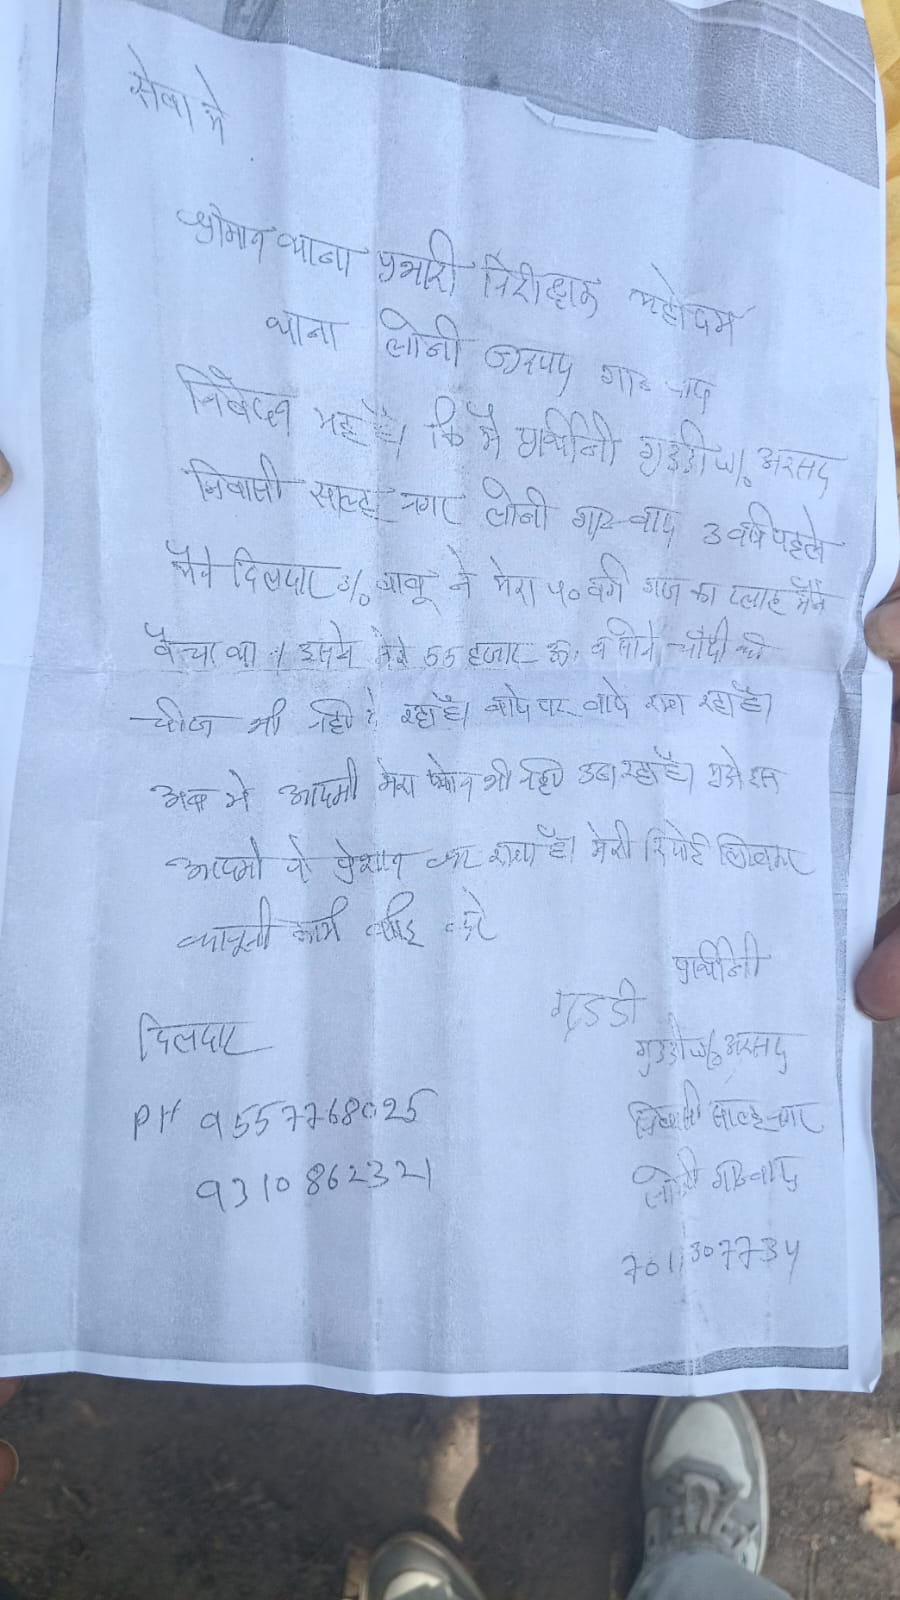 सेवा में
श्रीमान थाना प्रभारी निरीक्षक महोदय
थाना लोनी जनपद गा०बाद
निवेदन यह है। कि मै प्रार्थीनी गुड्डी w/o अरसद
निवासी नगर लोनी गा०बाद 3 वर्ष पहले
मैने दिलदार s/o बाबू ने मेरा ५० वर्ग गज का प्लाट मैने
बैचा था। इसमे मेरे 55 हजार रू. व सोने चाँदी की
चीज भी नही दे रहा है। वादे पर वादे कर रहा है।
अब ये आदमी मेरा फोन भी नही उठा रहा है। मुझे इस
आदमी ने प्रेशान कर रखा है। मेरी रिपोर्ट लिखकर
कानूनी कार्य वाही करे
प्रार्थीनी
गुड्डी
गुड्डी w/o अरसद
निवासी नगर
लोनी गा०बाद
7011307734
दिलदार
PH 9557768025
9310862321